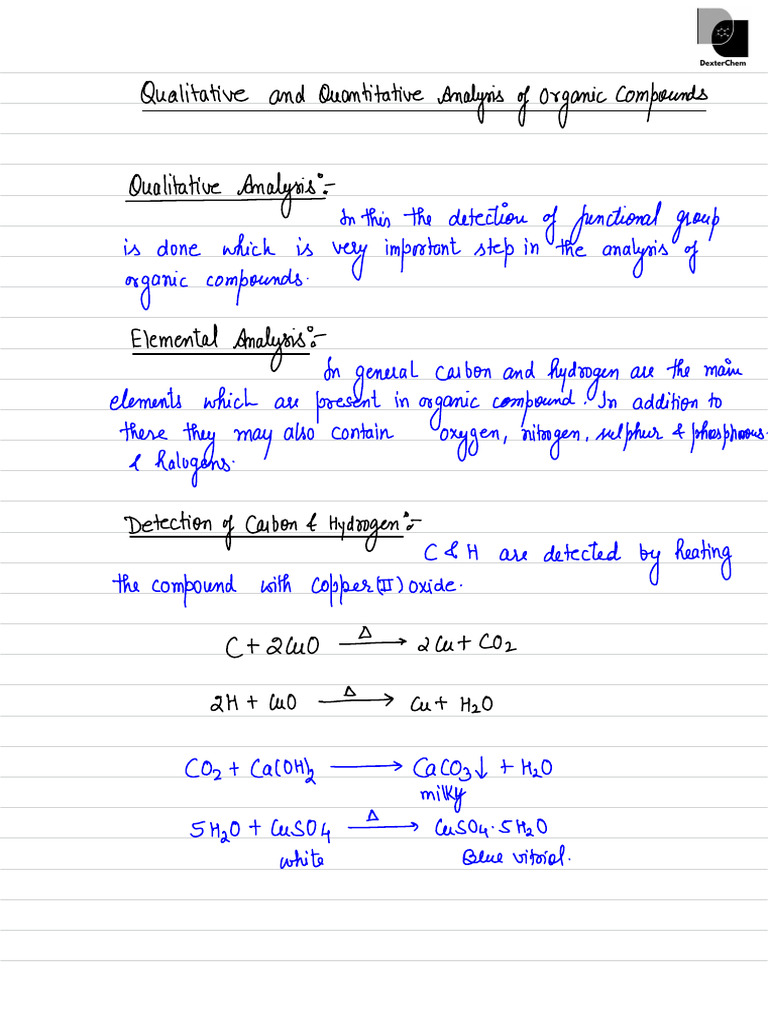 DexterChem
Qualitative and Quantitative Analysis of Organic Compounds
Qualitative Analysis:-
In this the detection of functional group
is done which is very important step in the analysis of
organic compounds.
Elemental Analysis:-
In general carbon and hydrogen are the main
elements which are present in organic compound. In addition to
these they may also contain oxygen, nitrogen, sulphur & phosphorous
& halogens.
Detection of Carbon & Hydrogen:-
C & H are detected by heating
the compound with copper(II) oxide.
C + 2CuO —Δ→ 2Cu + CO₂
2H + CuO —Δ→ Cu + H₂O
CO₂ + Ca(OH)₂ ⟶ CaCO₃↓ + H₂O
milky
5H₂O + CuSO₄ —Δ→ CuSO₄·5H₂O
white Blue vitriol.